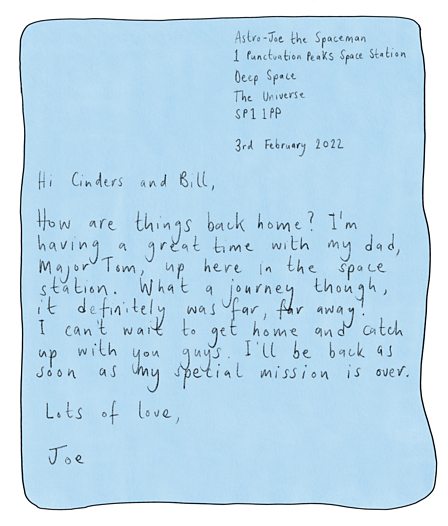 Astro-Joe the Spaceman
1 Punctuation Peaks Space Station
Deep Space
The Universe
SP1 1PP
3rd February 2022
Hi Cinders and Bill,
How are things back home? I'm
having a great time with my dad,
Major Tom, up here in the space
station. What a journey though,
it definitely was far, far away!
I can't wait to get home and catch
up with you guys. I'll be back as
soon as my special mission is over.
Lots of love,
Joe